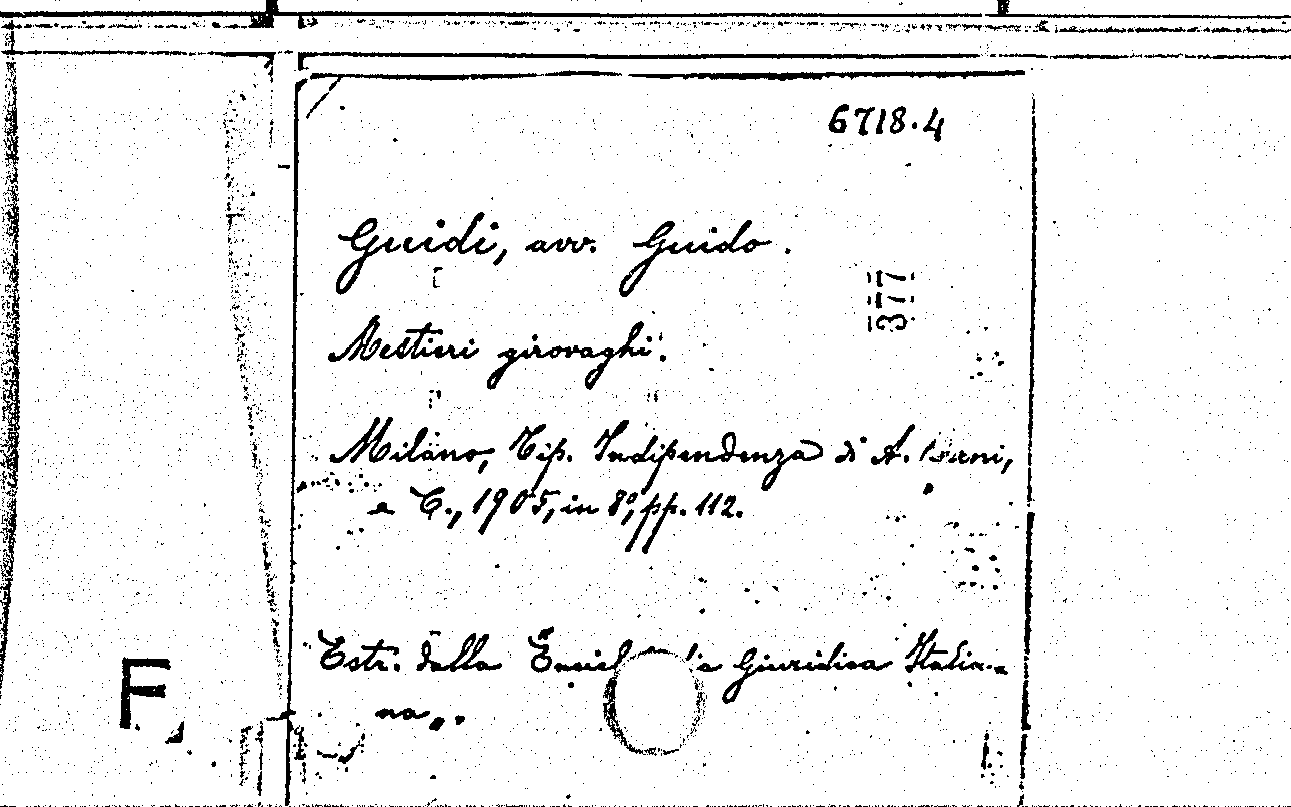 6718.4
Guidi, avv. Guido.
377
Mestieri girovaghi.
Milano, Tip. Indipendenza di A.
e C., 1905, in 8°, pp. 112.
Estr. dalla giuridica Italia-
na„.
F